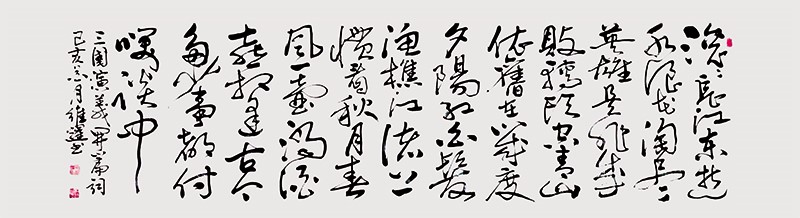 滾滾長江東逝
水浪花淘尽
英雄是非成
敗轉頭空青山
依舊在幾度
夕陽紅白髮
漁樵江渚上
慣看秋月春
風一壺濁酒
喜相逢古今
多少事都付
笑談中
三國演義開篇詞
己亥月維書